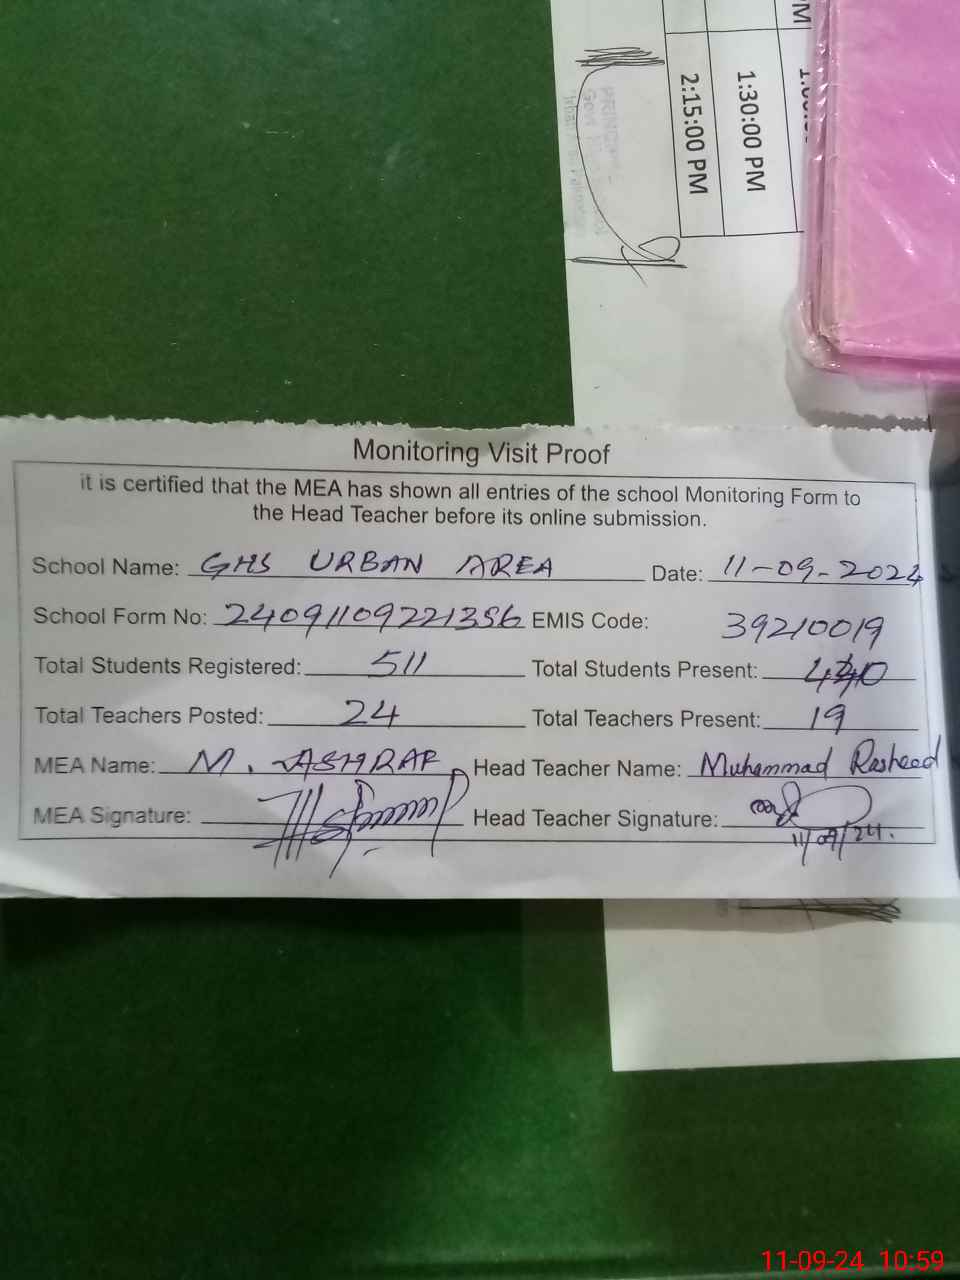 PM
1:30:00 PM
2:15:00 PM
Monitoring Visit Proof
it is certified that the MEA has shown all entries of the school Monitoring Form to
the Head Teacher before its online submission.
School Name: GHS URBAN AREA Date: 11-09-2024
School Form No: 24091109221356 EMIS Code: 39210019
Total Students Registered: 511 Total Students Present:
Total Teachers Posted: 24 Total Teachers Present: 19
MEA Name: M. ASHRAF Head Teacher Name: Muhammad Rasheed
MEA Signature: Head Teacher Signature:
11/09/24.
11-09-24 10:59